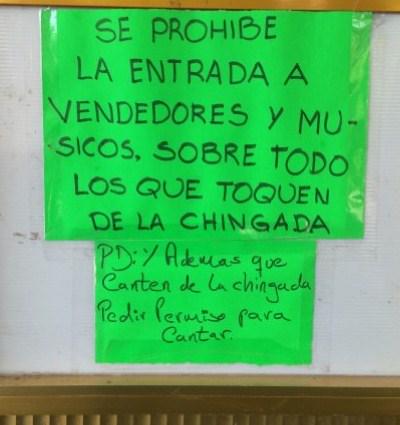 SE PROHIBE
LA ENTRADA A
VENDEDORES Y MU-
SICOS, SOBRE TODO
LOS QUE TOQUEN
DE LA CHINGADA
PD: Y Ademas que
Canten de La chingada
Pedir Permiso para
Cantar.